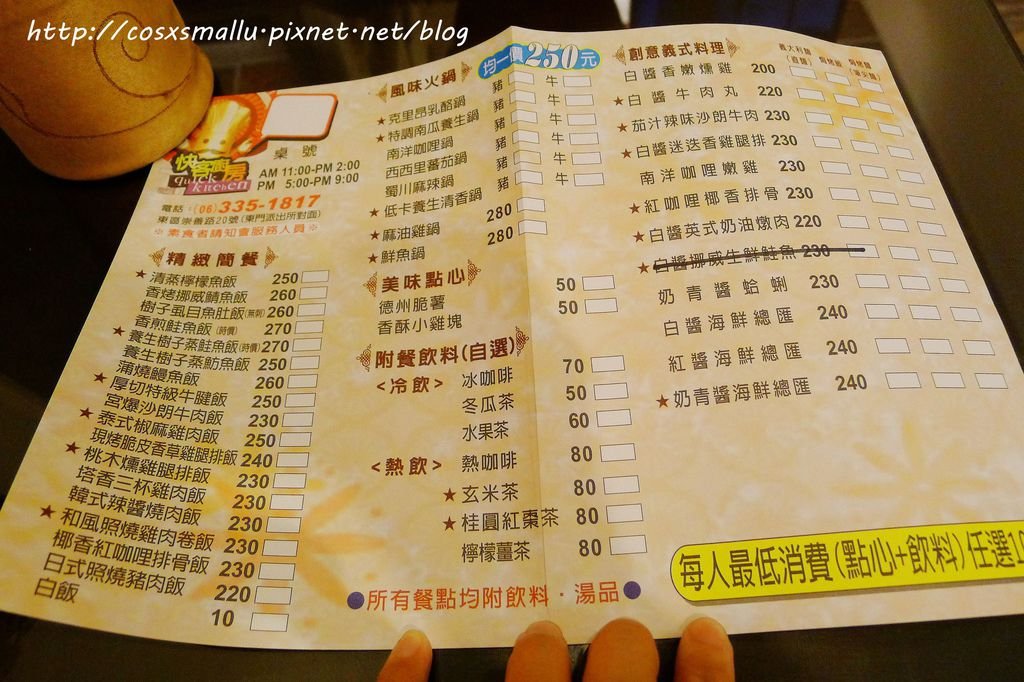 http://cosxsmallu.pixnet.net/blog
快客廚房
Quick kitchen
桌號
AM 11:00-PM 2:00
PM 5:00-PM 9:00
電話:(06)335-1817
東區崇善路20號(東門派出所對面)
※素食者請知會服務人員※
精緻簡餐
★清蒸檸檬魚飯 250
香烤挪威鯖魚飯 260
樹子虱目魚肚飯(無刺) 260
香煎鮭魚飯(時價) 270
★養生樹子蒸鮭魚飯(時價) 270
養生樹子蒸魴魚飯 250
蒲燒鰻魚飯 260
★厚切特級牛腱飯 250
宮爆沙朗牛肉飯 230
★泰式椒麻雞肉飯 250
現烤脆皮香草雞腿排飯 240
★桃木燻雞腿排飯 230
塔香三杯雞肉飯 230
韓式辣醬燒肉飯 230
★和風照燒雞肉卷飯 230
椰香紅咖哩排骨飯 230
日式照燒豬肉飯 220
白飯 10
風味火鍋 均一價250元
★克里昂乳酪鍋 豬 牛
★特調南瓜養生鍋 豬 牛
南洋咖哩鍋 豬 牛
西西里蕃茄鍋 豬 牛
蜀川麻辣鍋 豬 牛
★低卡養生清香鍋 豬 牛
★麻油雞鍋 280
★鮮魚鍋 280
美味點心
德州脆薯 50
香酥小雞塊 50
附餐飲料(自選)
<冷飲> 冰咖啡 70
冬瓜茶 50
水果茶 60
<熱飲> 熱咖啡 80
★玄米茶 80
★桂圓紅棗茶 80
檸檬薑茶 80
●所有餐點均附飲料・湯品●
創意義式料理
義大利麵(直麵) 焗烤飯 焗烤麵(筆尖麵)
白醬香嫩燻雞 200
★白醬牛肉丸 220
★茄汁辣味沙朗牛肉 230
★白醬迷迭香雞腿排 230
南洋咖哩嫩雞 230
★紅咖哩椰香排骨 230
★白醬英式奶油燉肉 220
★白醬挪威生鮮鮭魚 230
奶青醬蛤蜊 230
白醬海鮮總匯 240
紅醬海鮮總匯 240
★奶青醬海鮮總匯 240
每人最低消費(點心+飲料)任選10